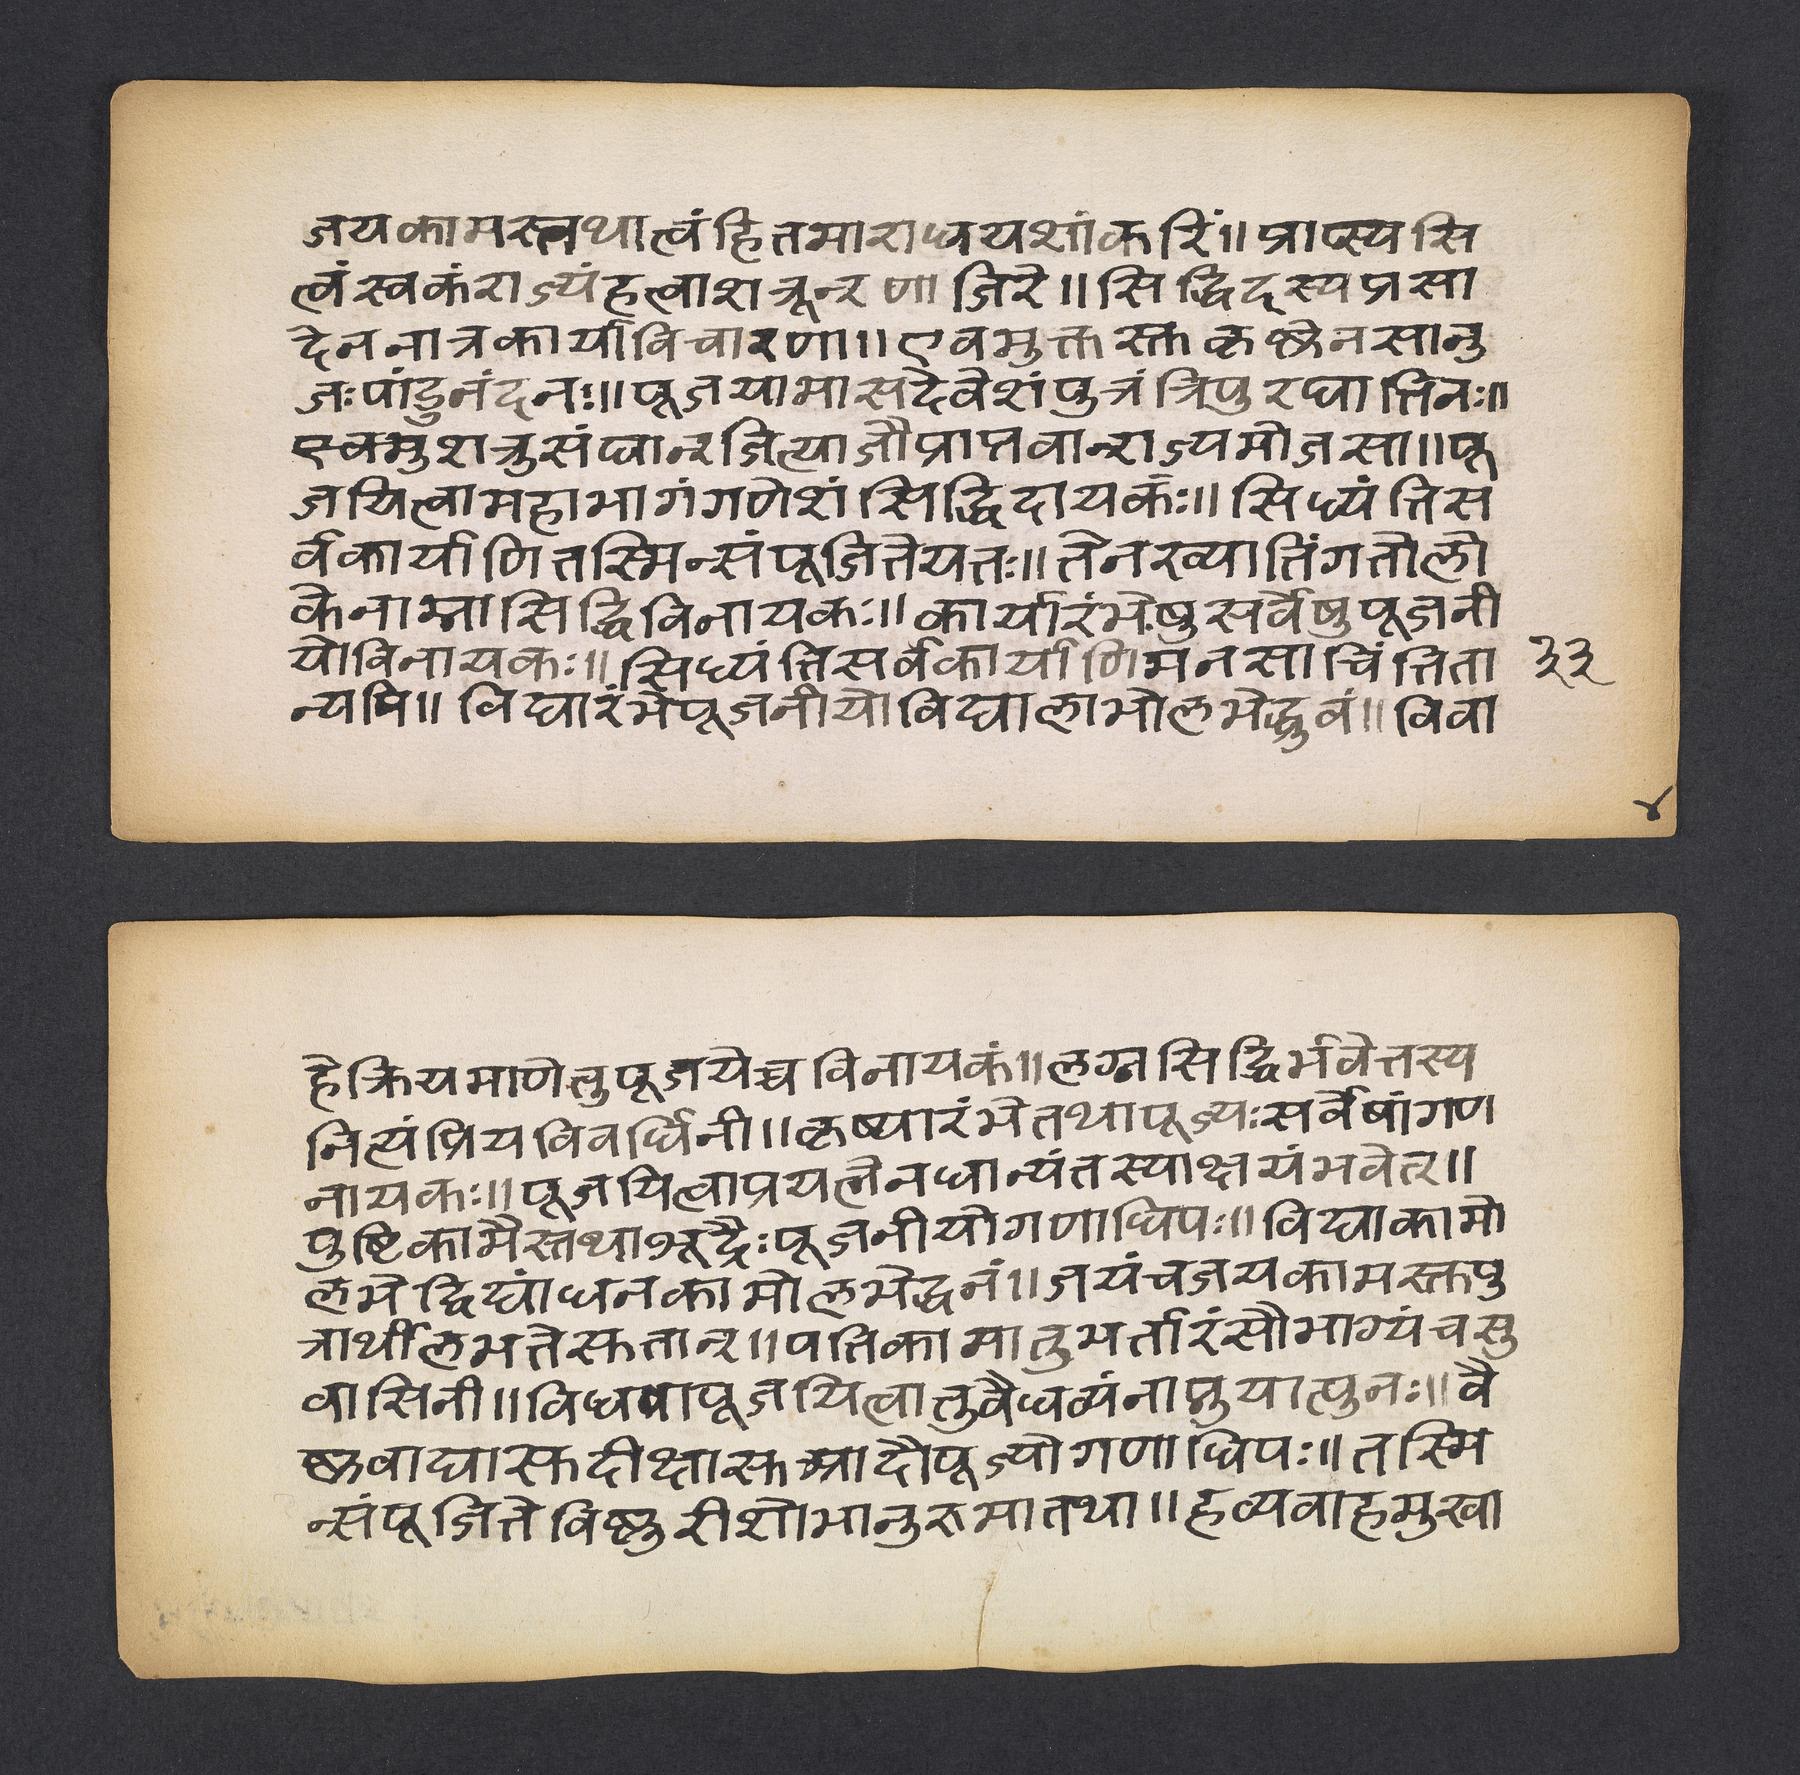 जयकामस्तथात्वंहितमाराधयशांकरिं॥प्राप्स्यसि
त्वंस्वकंराज्यंहत्वाशत्रून्रणाजिरे॥सिद्धिदस्यप्रसा
देननात्रकार्याविचारणा॥एवमुक्तस्तकृष्णेनसानु
जःपांडुनंदनः॥पूजयामासदेवेशंपुत्रंत्रिपुरघातिनः॥
एवमुशत्रुसंघान्रजित्याजौप्राप्तवान्राज्यमोजसा॥पू
जयित्वामहाभागंगणेशंसिद्धिदायकंः॥सिध्यंतिस
र्वकार्याणितस्मिन्संपूजितेयतः॥तेनख्यातिंगतोलो
केनाम्नासिद्धिविनायकः॥कार्यारंभेषुसर्वेषुपूजनी
योविनायकः॥सिध्यंतिसर्वकार्याणिमनसाचिंतिता ३३
न्यपि॥विद्यारंभेपूजनीयोविद्यालाभोलभेद्ध्रुवं॥विवा
४
हेक्रियमाणेतुपूजयेच्चविनायकं॥लग्नसिद्धिर्भवेत्तस्य
नित्यंप्रियविवर्धिनी॥कृष्यारंभेतथापूज्यःसर्वेषांगण
नायकः॥पूजयित्वाप्रयत्नेनधान्यंतस्याक्षयंभवेत्॥
पुष्टिकामैस्तथाभूद्रैःपूजनीयोगणाधिपः॥विद्याकामो
लभेद्विद्यांधनकामोलभेद्धनं॥जयंचजयकामस्तपु
त्रार्थीलभतेस्कतान्॥पतिकामातुभर्तारंसौभाग्यंचसु
वासिनी॥विधवापूजयित्वातुवैधव्यंनाप्नुयात्पुनः॥वै
ष्णवाद्यास्कदीक्षास्कआदौपूज्योगणाधिपः॥तस्मि
न्संपूजितेविष्णुरीशोभानुरुमातथा॥हव्यवाहमुखा